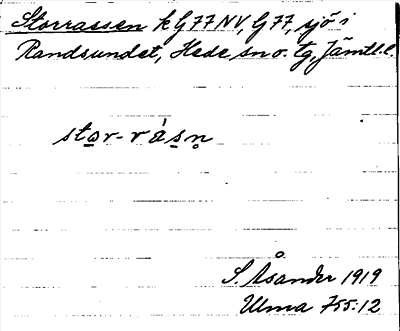 Storrassen k G77NV, G77, sjö i
Randsundet, Hede sn o. tg, Jämtl.l.
sto̲r-rás̲n̥
S. Åsander 1919
Ulma 755:12